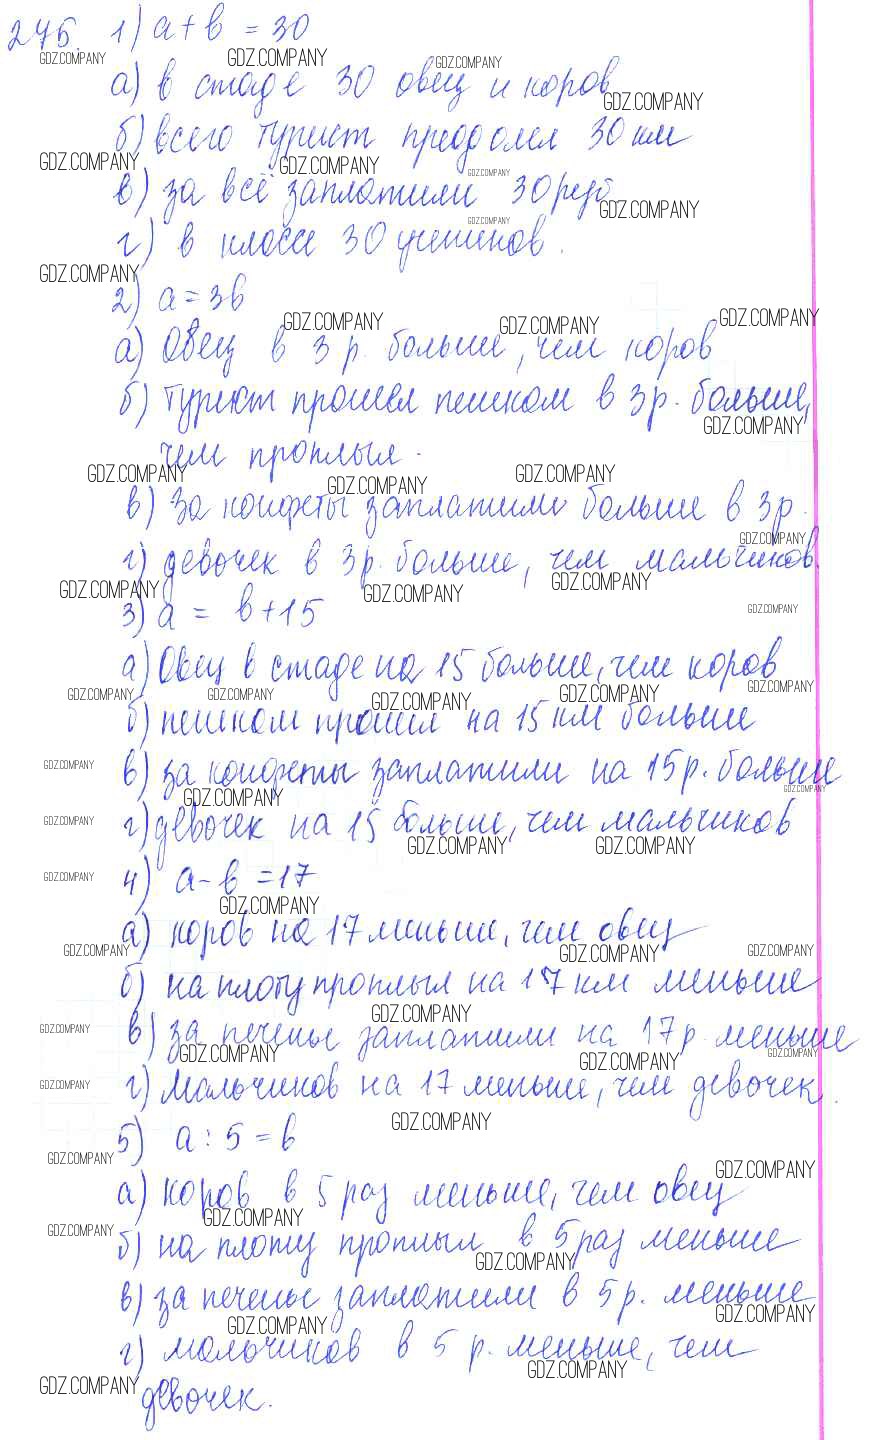 245. 1) a + b = 30
а) в стаде 30 овец и коров
б) всего турист преодолел 30 км
в) за всё заплатили 30 руб
г) в классе 30 учеников.
2) a = 3b
а) Овец в 3 р. больше, чем коров
б) турист прошел пешком в 3 р. больше,
чем проплыл.
в) за конфеты заплатили больше в 3 р.
г) девочек в 3 р. больше, чем мальчиков.
3) a = b + 15
а) Овец в стаде на 15 больше, чем коров
б) пешком прошел на 15 км больше
в) за конфеты заплатили на 15 р. больше
г) девочек на 15 больше, чем мальчиков
4) a - b = 17
а) коров на 17 меньше, чем овец
б) на плоту проплыл на 17 км меньше
в) за печенье заплатили на 17 р. меньше
г) мальчиков на 17 меньше, чем девочек.
5) a : 5 = b
а) коров в 5 раз меньше, чем овец
б) на плоту проплыл в 5 раз меньше
в) за печенье заплатили в 5 р. меньше
г) мальчиков в 5 р. меньше, чем
девочек.
GDZ.COMPANY